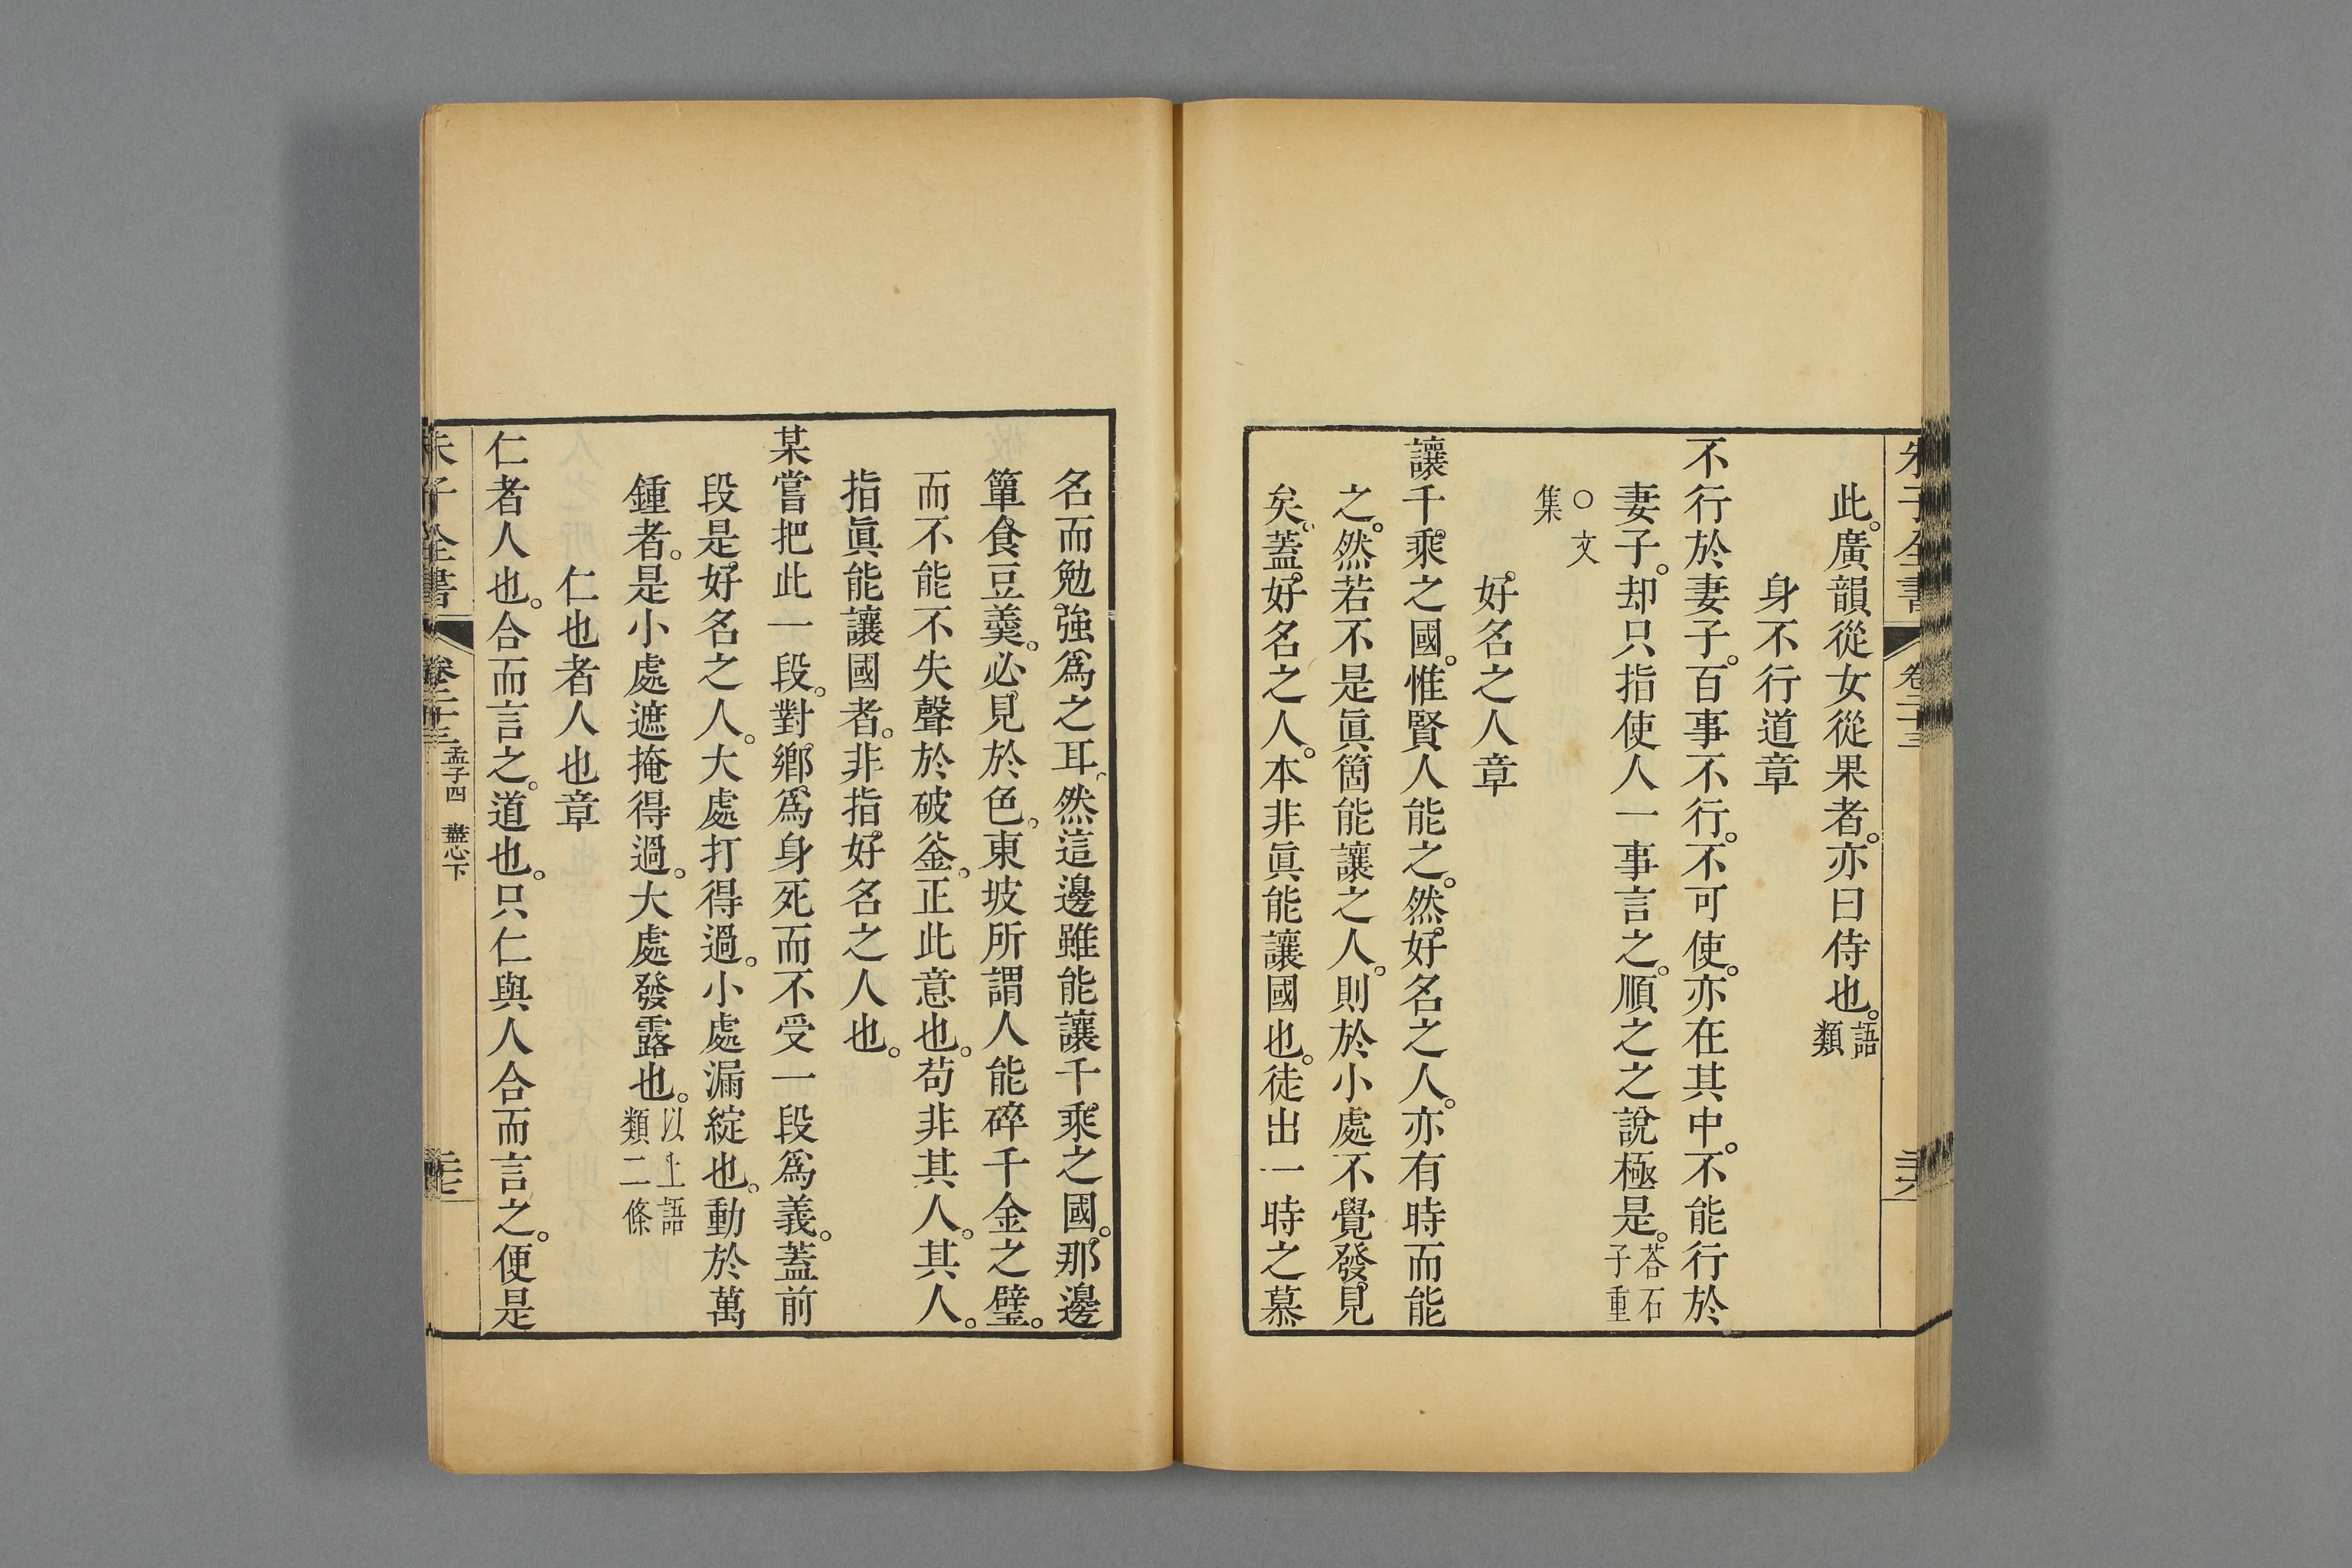 朱子全書 卷二十三 三六
此。廣韻從女從果者。亦曰侍也。語類
身不行道章
不行於妻子。百事不行。不可使。亦在其中。不能行於
妻子。却只指使人一事言之。順之之說極是。荅石子重
○文集
好名之人章
讓千乘之國。惟賢人能之。然好名之人。亦有時而能
之。然若不是眞箇能讓之人。則於小處不覺發見
矣。蓋好名之人。本非眞能讓國也。徒出一時之慕
名而勉強爲之耳。然這邊雖能讓千乘之國。那邊
簞食豆羹。必見於色。東坡所謂人能碎千金之璧。
而不能不失聲於破釜。正此意也。苟非其人。其人。
指眞能讓國者。非指好名之人也。
某嘗把此一段。對鄉爲身死而不受一段爲義。蓋前
段是好名之人。大處打得過。小處漏綻也。動於萬
鍾者。是小處遮掩得過。大處發露也。以上語類二條
仁也者人也章
仁者人也。合而言之。道也。只仁與人合而言之。便是
朱子全書 卷二十三 孟子四 盡心下 三七